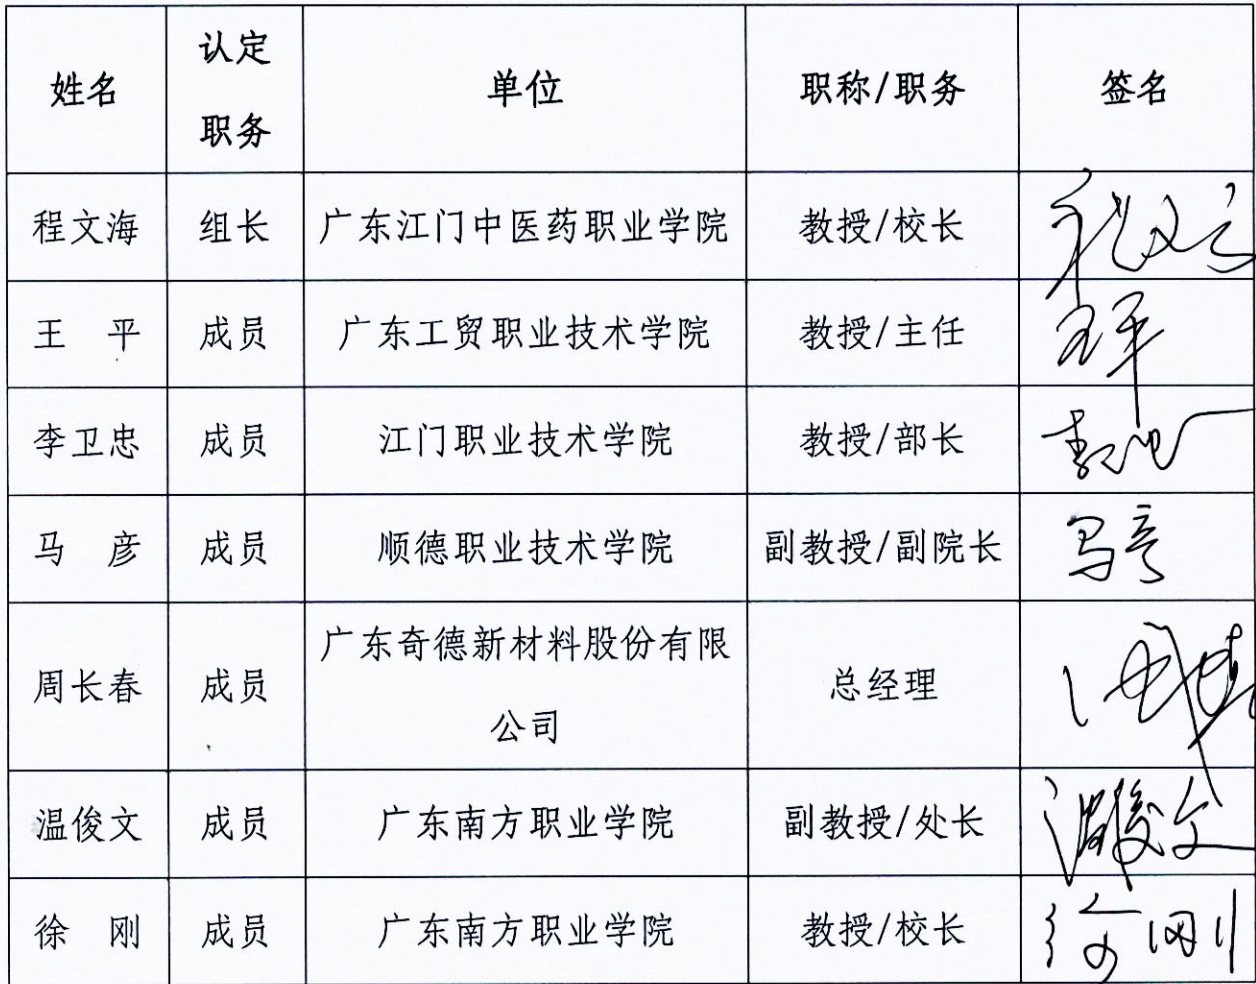 姓名 认定职务 单位 职称/职务 签名
程文海 组长 广东江门中医药职业学院 教授/校长 程文海
王 平 成员 广东工贸职业技术学院 教授/主任 王平
李卫忠 成员 江门职业技术学院 教授/部长
马 彦 成员 顺德职业技术学院 副教授/副院长 马彦
周长春 成员 广东奇德新材料股份有限
公司 总经理
温俊文 成员 广东南方职业学院 副教授/处长 温俊文
徐 刚 成员 广东南方职业学院 教授/校长 徐刚